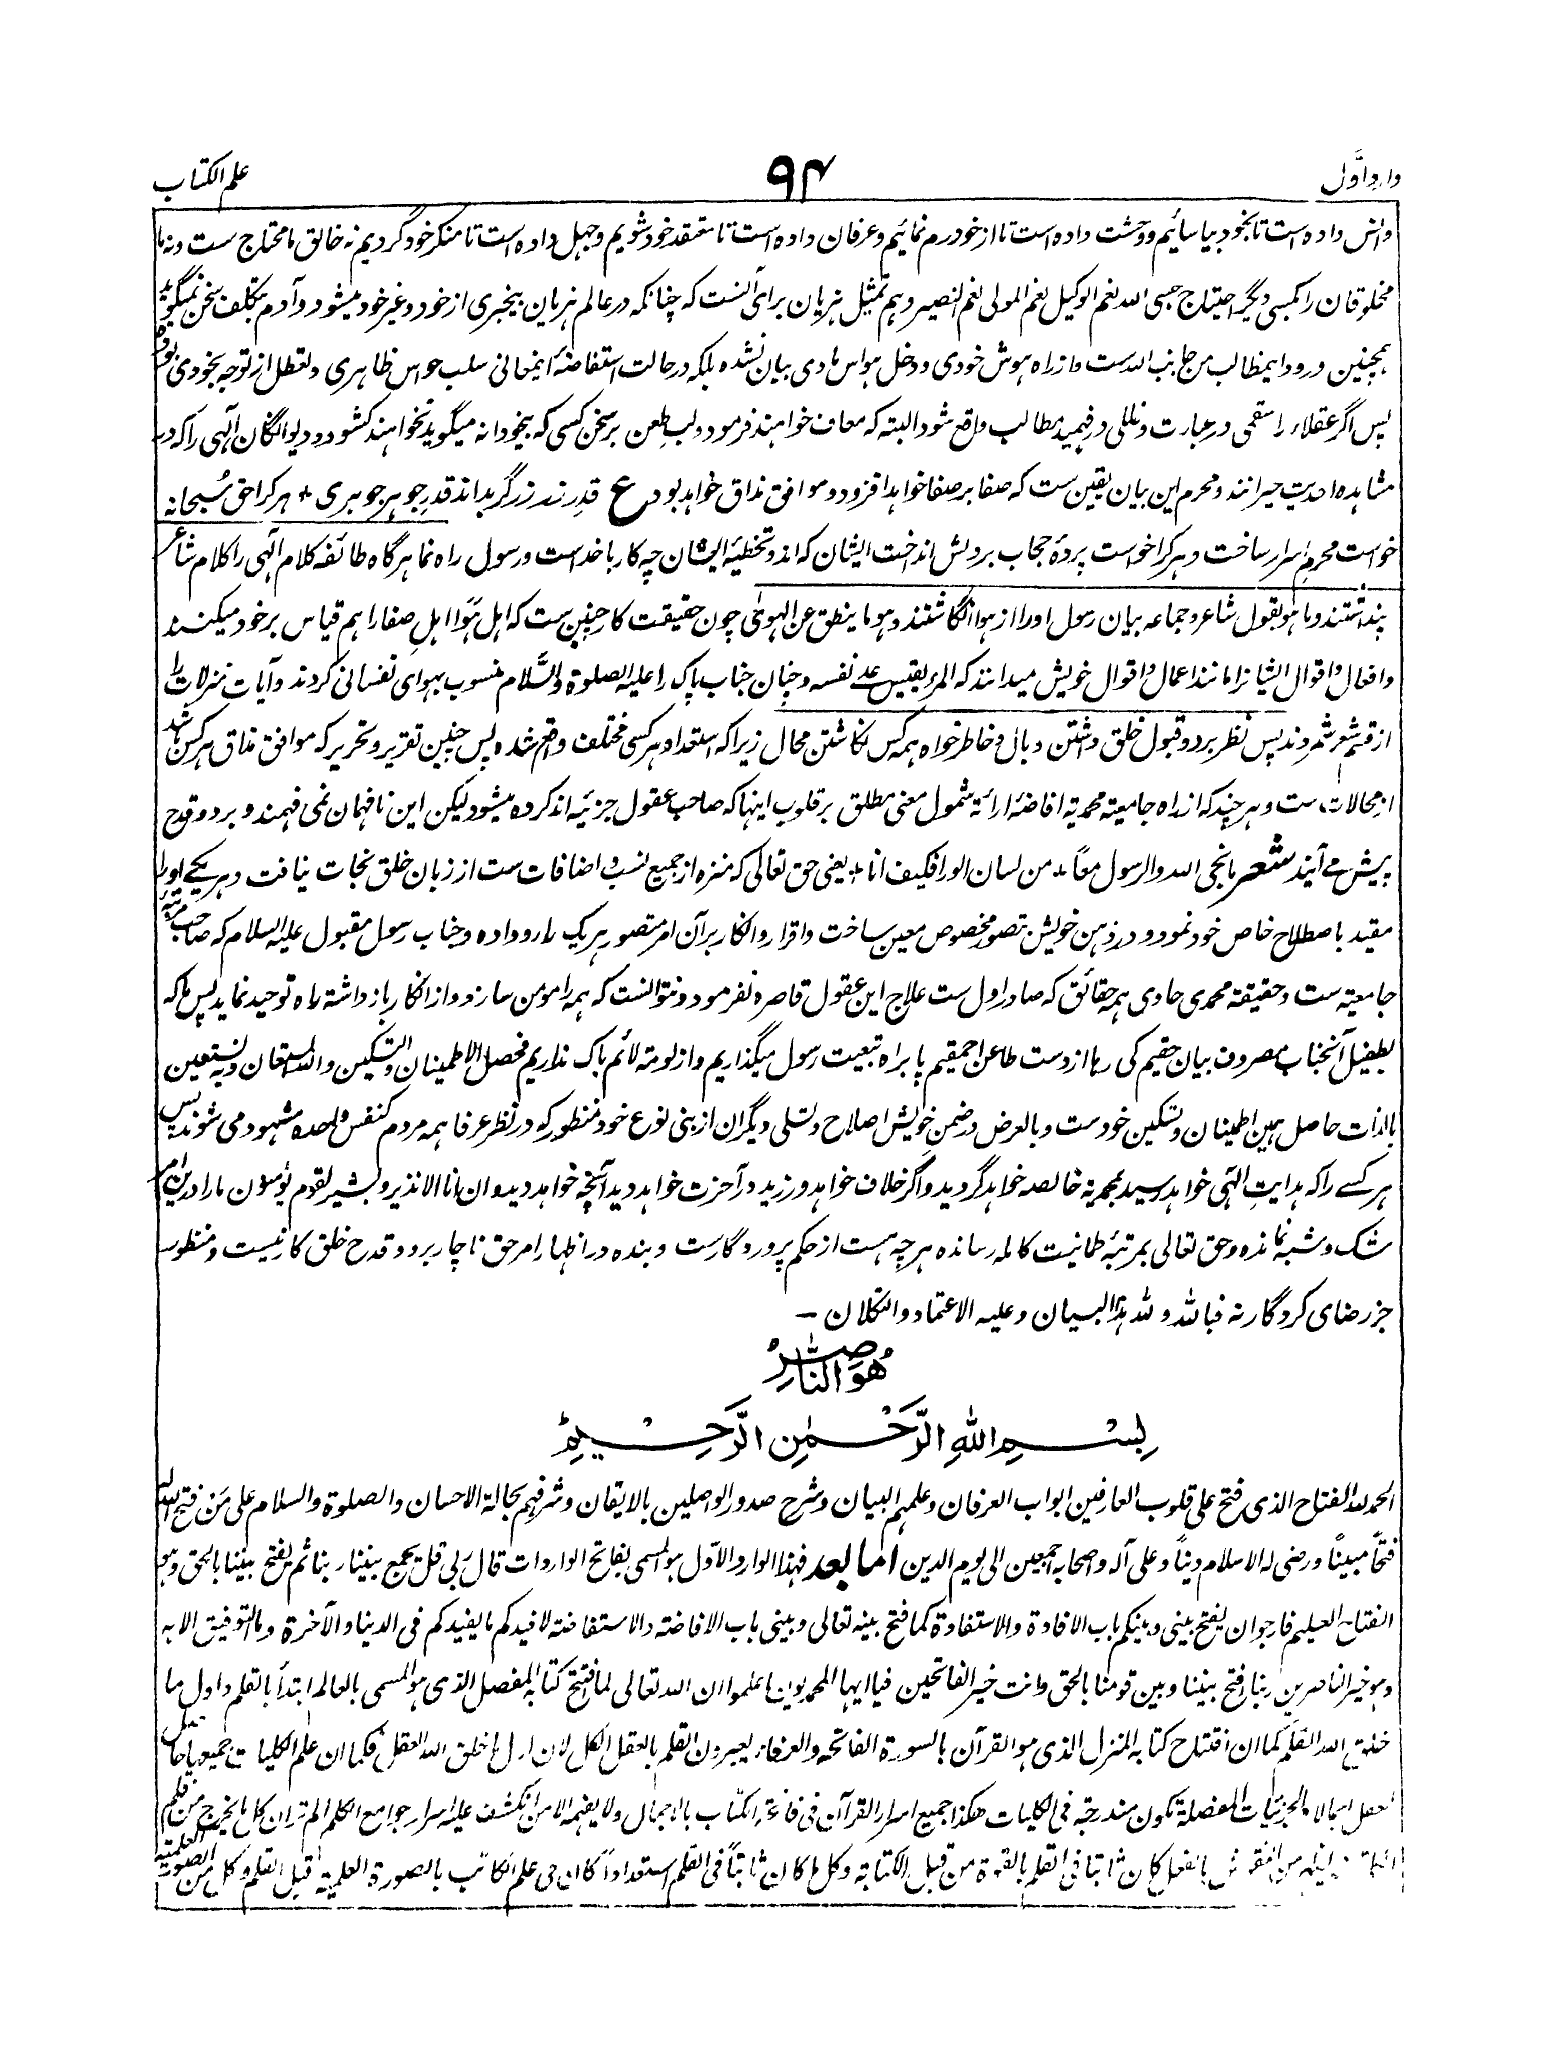 وارد اوّل
۹۴
علم الکتاب
وانس داده است تا بخود بیاسائیم و وحشت داده است تا از خود رم نمائیم و عرفان داده است تا معتقد خود شویم و جهل داده است تا منکر خود گردیم نه خالق ما محتاج ست و نه ما
مخلوقان را بکسی دیگر احتیاج حسبی الله نعم الوکیل نعم المولی نعم النصیر و هم تمثیل هزیان برای آنست که چنانکه در عالم هزیان بیخبری از خود و غیر خود میشود و آدم بتکلف سخن نمیگوید
همچنین درود اینمطالب من جانب الله ست و از راه هوش خودی و دخل هواس مادی بیان نشده بلکه در حالت استفاضهٔ اینمعانی سلب حواس ظاهری و تعطل از توجه بخودی بود
پس اگر عقلاء را سقمی در عبارت و خللی در فهمید مطالب واقع شود البته که معاف خواهند فرمود و لب طعن بر سخن کسی که بیخودانه میگوید نخواهند کشود و دیوانگان الٓهی را که در
مشاهده احدیت حیرانند و محرم این بیان یقین ست که صفا بر صفا خواهد افزود و موافق مذاق خواهد بود ع قدر زر زرگر بداند قدر جوهر جوهری + هر کرا حق سُبحانه
خواست محرم اسرار ساخت و هر کرا خواست پردهٔ حجاب بر دلش انداخت ایشان که اند و تخطیهٔ ایشان چه کار با خداست و رسول راه نما هرگاه طائفه کلام الٓهی را کلام شاعر
پنداشتند و ما هو بقول شاعر و جماعه بیان رسول او را از هوا انگاشتند و هو ما ینطق عن الهویٰ چون حقیقت کار چنین ست که اهل هَوَا اهل صفا را هم قیاس بر خود میکنند
و افعال و اقوال ایشانرا مانند اعمال و اقوال خویش میدانند که المرء یقیس علی نفسه و چنان جناب پاک را علیه الصلوة والسَّلام منسوب بهوای نفسانی کردند و آیات منزلات را
از قسم شعر شمردند پس نظر بر رد و قبول خلق داشتن وبال و خاطر خواه همه کس نگاشتن محال زیرا که استعداد هر کسی مختلف واقع شده پس چنین تقریر و تحریر که موافق مذاق هر کس باشد
از محالات ست و هر چند که از راه جامعیته محمدیة افاضهٔ ارائة شمول معنی مطلق بر قلوب اینها که صاحب عقول جزئیه اند کرده میشود لیکن این نافهمان نمی فهمند و برد و قدح
پیش می آیند شعر ما نجی الله والرسول معاً + من لسان الورا فکیف انا + یعنی حق تعالی که منزه از جمیع نسب و اضافات ست از زبان خلق نجات نیافت و هر یکے او را
مقید باصطلاح خاص خود نمود و در ذهن خویش بتصور مخصوص معین ساخت و اقرار و انکار بر آن امر متصور هر یک را رو داده و جناب رسول مقبول علیه السلام که صاحب مرتبه
جامعیته ست و حقیقة محمدی حاوی همه حقائق که صادر اول ست علاج این عقول قاصره نفرمود و نتوانست که همه را مومن سازد و از انکار باز داشته راه توحید نماید پس ما که
بطفیل آنجناب مصروف بیان حقیم کی رها از دست طاعن احمقیم پا براه تبعیت رسول میگذاریم و از لومة لائم باک نداریم فحصل الاطمینان والتسکین والله المستعان و به نستعین
بالذات حاصل همین اطمینان و تسکین خود ست و بالعرض در ضمن خویش اصلاح و تسلی دیگران از بنی نوع خود منظور که در نظر عرفا همه مردم کنفس واحده مشهود می شوند پس
هر کسے را که هدایت الٓهی خواهد رسید بمحمدیة خالصه خواهد گردید و اگر خلاف خواهد ورزید در آخرت خواهد دید آنچه خواهد دید و ان انا الا نذیر و بشیر لقوم یؤمنون ما را درین امر
شک و شبه نمانده و حق تعالی بمرتبهٔ طمانیت کامله رسانده هر چه هست از حکم پروردگارست و بنده در اظهار امر حق ناچار برد و قدح خلق کار نیست و منظور
جز رضای کردگار نه فبالله و لله هذا البیان و علیه الاعتماد والتکلان –
هُوَ النَّاصِرُ
بِسْمِ اللهِ الرَّحْمٰنِ الرَّحِیْمِ
الحمد لله الفتاح الذی فتح علی قلوب العارفین ابواب العرفان و علمهم البیان و شرح صدور الواصلین بالایقان و شرفهم بحالة الاحسان والصلوة والسلام علی مَن فتح الله له
فتحًا مبینًا و رضی له الاسلام دینًا و علی آله و اصحابه اجمعین الی یوم الدین اما بعد فهذا الوارد الاوّل هو المسمی بفاتح الواردات قال ربی قل یجمع بیننا ربنا ثم یفتح بیننا بالحق و هو
الفتاح العلیم فارجو ان یفتح بینی و بینکم باب الافادة والاستفادة کما فتح بینه تعالی و بینی باب الافاضة والاستفاضة لافیدکم ما یفیدکم فی الدنیا والآخرة و ما التوفیق الا به
و هو خیر الناصرین ربنا افتح بیننا و بین قومنا بالحق و انت خیر الفاتحین فیا ایها المحمدیون اعلموا ان الله تعالی لما افتتح کتابه المفصل الذی هو المسمی بالعالم ابتدأ بالقلم و اول ما
خلق الله القلم کما ان افتتاح کتابه المنزل الذی هو القرآن بالسورة الفاتحه والعرفاء یعبرون القلم بالعقل الکل لان اول ما خلق الله العقل فکما ان علم الکلیات جمیعها حاصل
العقل اجمالا والجزئیات المفصلة تکون مندرجة فی الکلیات هکذا جمیع اسرار القرآن فی فاتحة الکتاب بالاجمال ولا یفهمه الا من انکشف علیه اسرار جوامع الکلم الم تر ان کل ما یخرج من قلم
من النقوش بالفعل کان ثابتا فی القلم بالقوة من قبل الکتابة و کل ما کان ثابتاً فی القلم استعداداً کان فی علم الکاتب بالصورة العلمیة قبل القلم و کل من الصورة العلمیة